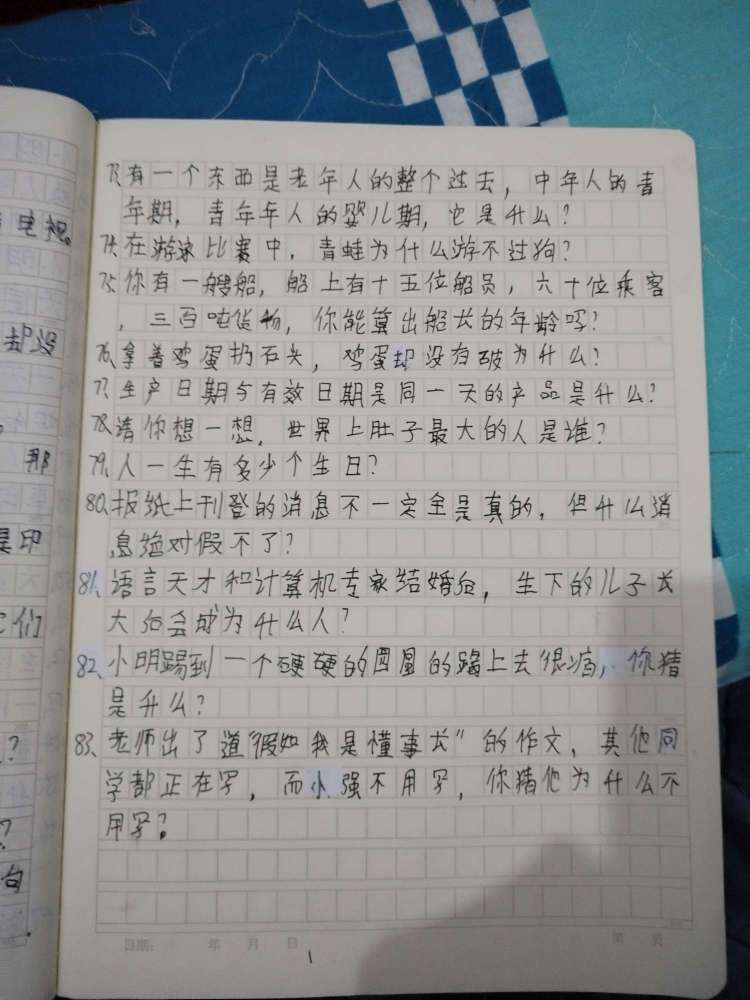 电视。
却没
那
是印
它们
？
？
句
73、有一个东西是老年人的整个过去，中年人的青
年期，青年年人的婴儿期，它是什么？
74、在游泳比赛中，青蛙为什么游不过狗？
75、你有一艘船，船上有十五位船员，六十位乘客
，三百吨货物，你能算出船长的年龄吗？
76、拿着鸡蛋扔石头，鸡蛋却没有破为什么？
77、生产日期与有效日期是同一天的产品是什么？
78、请你想一想，世界上肚子最大的人是谁？
79、人一生有多少个生日？
80、报纸上刊登的消息不一定全是真的，但什么消
息绝对假不了？
81、语言天才和计算机专家结婚后，生下的儿子长
大后会成为什么人？
82、小明踢到一个硬硬的圆量的踢上去很痛，你猜
是什么？
83、老师出了道“假如我是懂事长”的作文，其他同
学都正在写，而小强不用写，你猜他为什么不
用写？
日期： 年 月 日
1
第 页